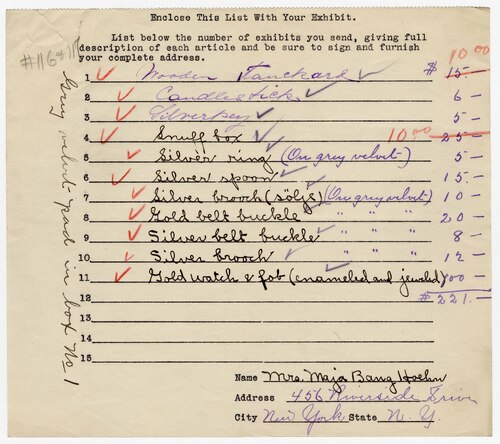 Enclose This List With Your Exhibit.
List below the number of exhibits you send, giving full
description of each article and be sure to sign and furnish
your complete address.
#116411
10 00
1 Wooden Tanckard $ 15.-
2 Candlestick 6 -
3 5 -
4 Snuff box 10 00 25 -
5 Silver ring (On grey velvet) 5 -
6 Silver spoon 15.-
7 Silver brooch (sölje) (On grey velvet) 10 -
8 Gold belt buckle " " " 20 -
9 Silver belt buckle " " " 8 -
10 Silver brooch " " " 12 -
11 Gold watch & fob (enameled and jeweled) 100 -
12 $ 221.-
13
14
15
Grey velvet pad in box No 1
Name Mrs. Maja Bang Hoehn
Address 456 Riverside Drive
City New York State N. Y.